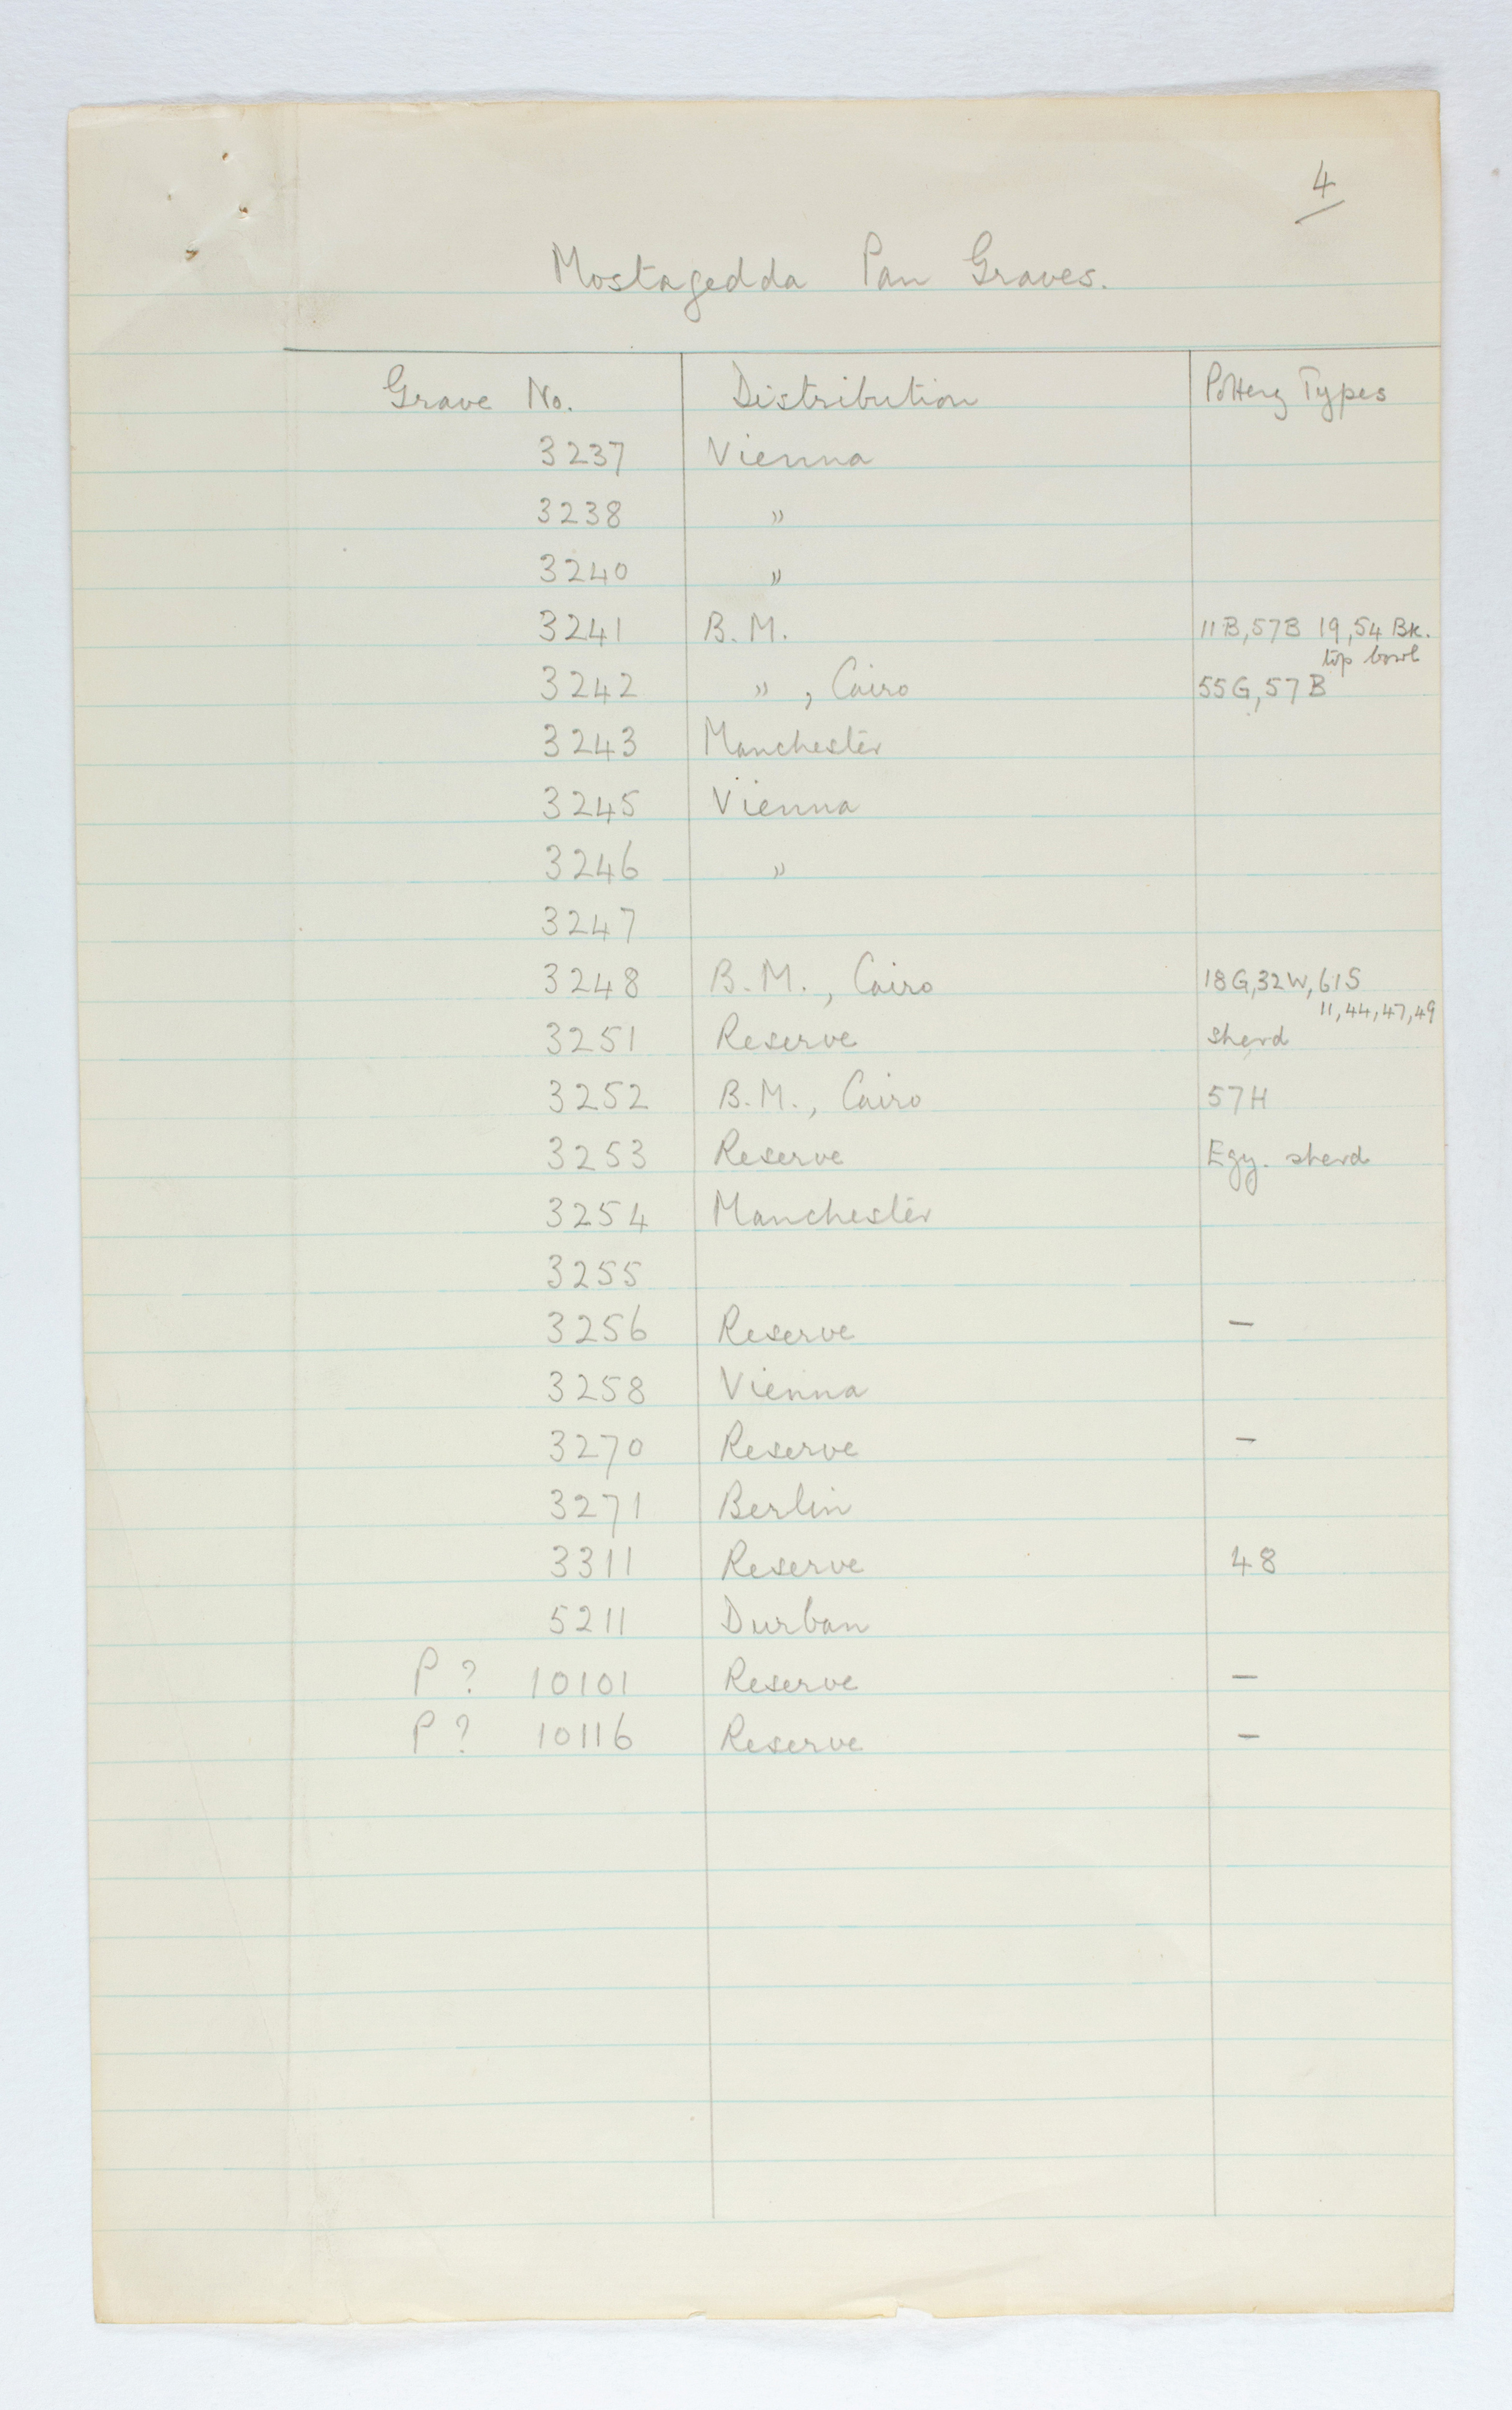 4
Mostagedda Pan Graves.
Grave No. Distribution Pottery Types
3237 Vienna
3238 "
3240 "
3241 B.M. 11B, 57B 19, 54 Bk.
top bowl
3242 " , Cairo 55G, 57B
3243 Manchester
3245 Vienna
3246 "
3247
3248 B.M., Cairo 18G, 32W, 61S
11, 44, 47, 49
3251 Reserve sherd
3252 B.M., Cairo 57H
3253 Reserve Egy. sherd
3254 Manchester
3255
3256 Reserve –
3258 Vienna
3270 Reserve –
3271 Berlin
3311 Reserve 48
5211 Durban
P ? 10101 Reserve –
P ? 10116 Reserve –